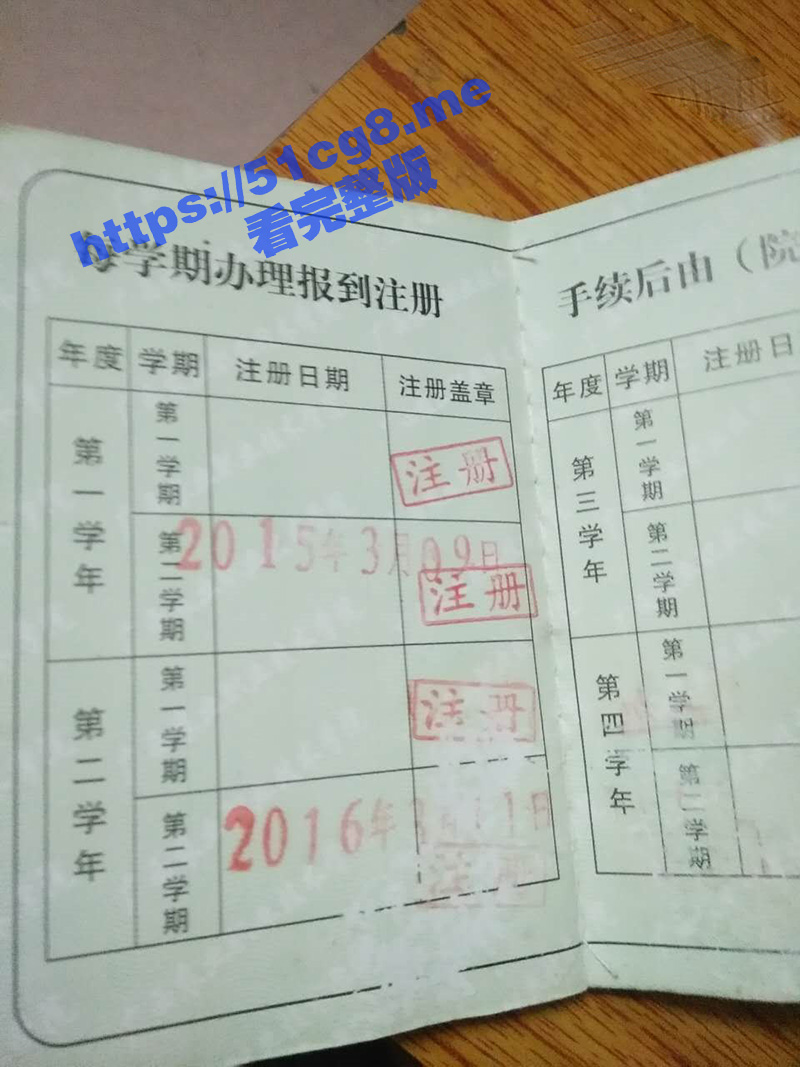 https://51cg8.me
看完整版
每学期办理报到注册
年度 学期 注册日期 注册盖章
第一学年
第一学期
注册
第二学期
2015年3月09日
注册
第二学年
第一学期
注册
第二学期
2016年3月11日
注册
手续后由（院
年度 学期 注册日
第三学年
第一学期
第二学期
第四学年
第一学期
第二学期